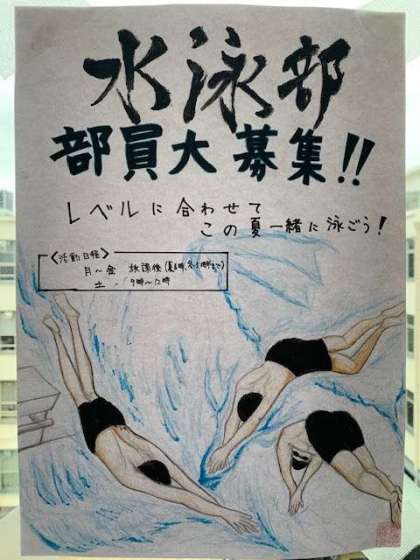 水泳部
部員大募集!!
レベルに合わせて
この夏一緒に泳ごう!
〈活動日程〉
月〜金 放課後(夏6時、冬5時半まで)
土 9時〜12時